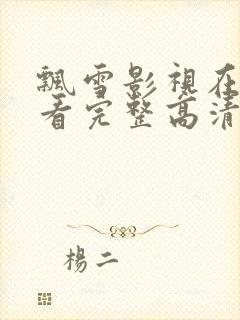 飄雪影視在
看完整高清
楊二